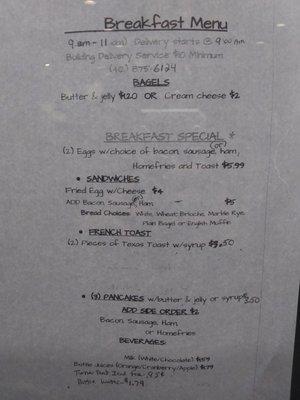 Breakfast Menu
9 am - 11 am Delivery starts @ 9:00 Am
Building Delivery Service $10 Minimum
875-6124
BAGELS
Butter & jelly $1.20 OR Cream cheese $2
BREAKFAST SPECIAL *
(2) Eggs w/choice of bacon, sausage, (or) ham,
Homefries and Toast $5.99
• SANDWICHES
Fried Egg w/Cheese $4
ADD Bacon, Sausage, (or) Ham $5
Bread Choices White, Wheat, Brioche, Marble Rye
Plain Bagel or English Muffin
• FRENCH TOAST
(2) Pieces of Texas Toast w/syrup $3.50
• (3) PANCAKES w/butter & jelly or syrup $3.50
ADD SIDE ORDER $2
Bacon, Sausage, Ham
or Homefries
BEVERAGES:
Milk (White/Chocolate) $1.59
Bottle Juices (Orange/Cranberry/Apple) $1.79
Water $1.79